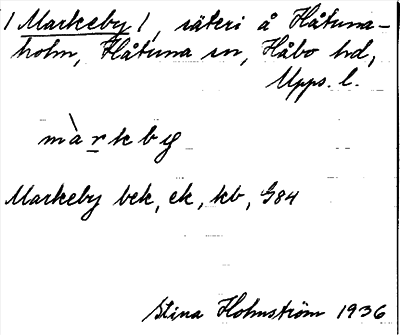 / Markeby /, säteri å Håtuna-
holm, Håtuna sn, Håbo hd,
Upps. l.
màrkby
Markeby bek, ek, kb, G84
Stina Holmström 1936